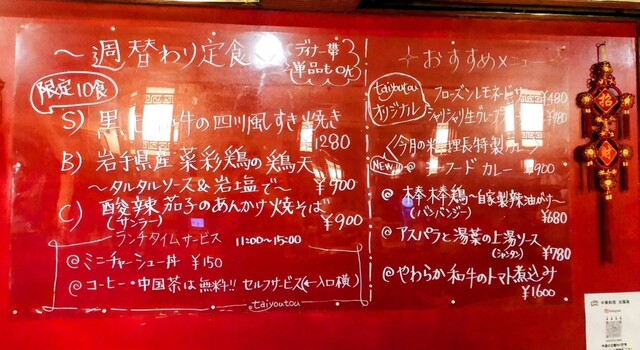 ～週替わり定食～
ディナー
単品もOK
限定10食
S) 黒毛和牛の四川風すき焼き
1280
B) 岩手県産菜彩鶏の鶏天
～タルタルソース&岩塩で～ ¥900
C) 酸辣茄子のあんかけ焼そば
(サンラー) ¥900
ランチタイムサービス 11:00～15:00
@ミニチャーシュー丼 ¥150
@コーヒー・中国茶は無料!! セルフサービス(←入口横)
taiyoutou
おすすめメニュー
taiyoutou
オリジナル
フローズンレモネード
¥480
シャリシャリ生グレープ
¥480
〈今月の料理長特製カレー〉
NEW!! @シーフードカレー ¥900
@棒棒鶏～自家製辣油がけ～
(バンバンジー) ¥680
@アスパラと湯葉の上湯ソース
(シャンタン) ¥780
@やわらか和牛のトマト煮込み
¥1600
招